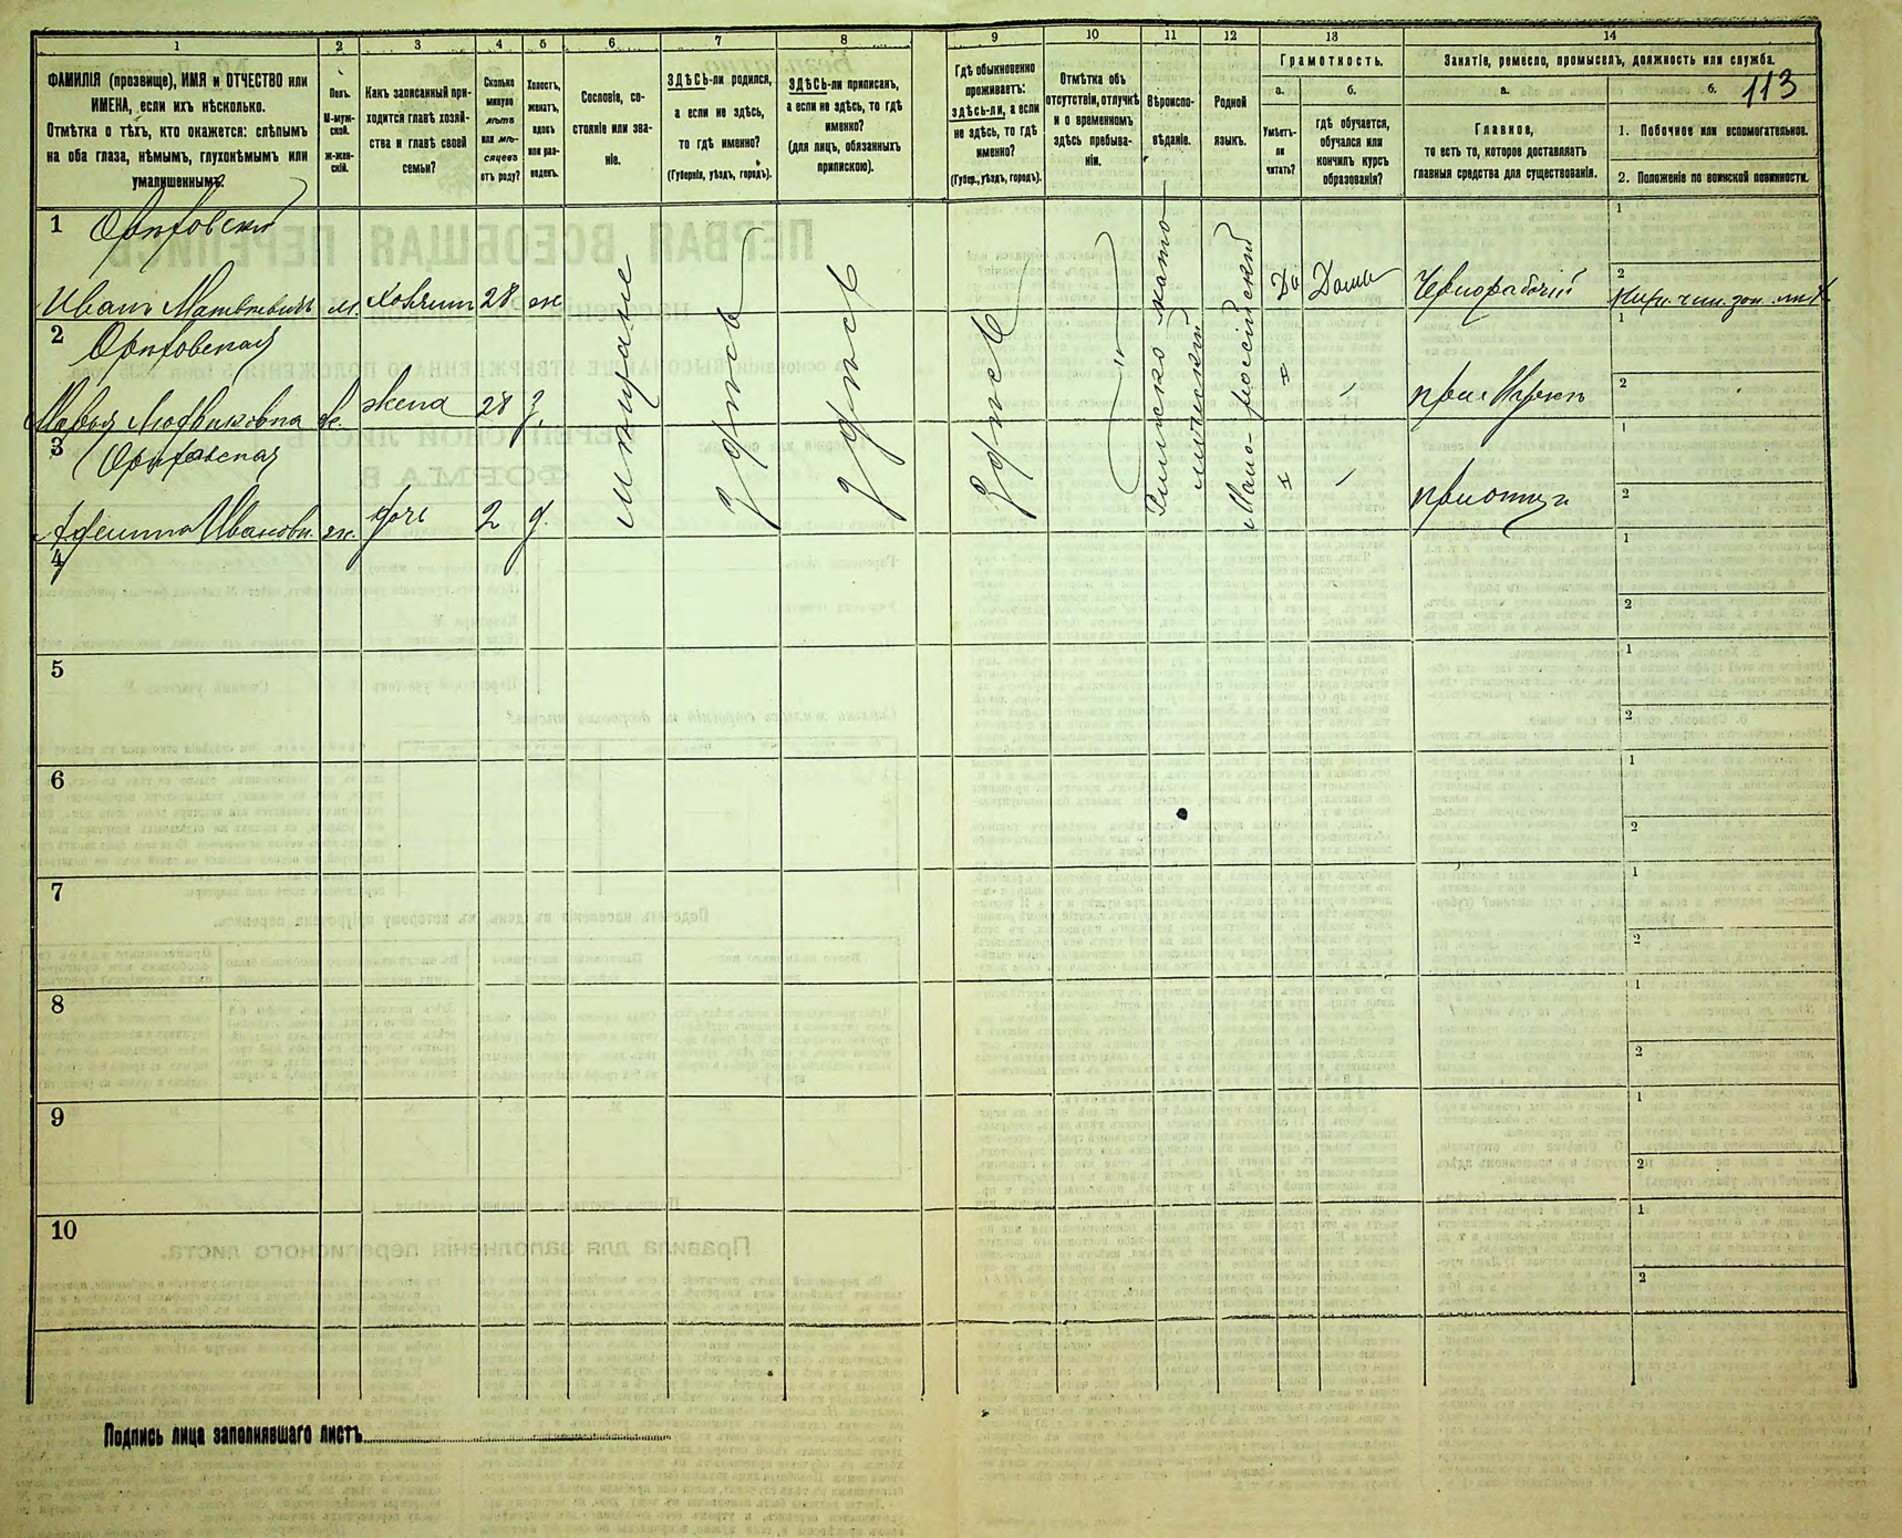 1 2 3 4 5 6 7 8 9 10 11 12 13 14
ФАМИЛІЯ (прозвище), ИМЯ и ОТЧЕСТВО или
ИМЕНА, если ихъ нѣсколько.
Отмѣтка о тѣхъ, кто окажется: слѣпымъ
на оба глаза, нѣмымъ, глухонѣмымъ или
умалишеннымъ.
Полъ.
М-муж-
ской.
Ж-жен-
скій.
Какъ записанный при-
ходится главѣ хозяй-
ства и главѣ своей
семьи?
Сколько
минуло
лѣтъ
или мѣ-
сяцевъ
отъ роду?
Холостъ,
женатъ,
вдовъ
или раз-
веденъ.
Сословіе, со-
стояніе или зва-
ніе.
ЗДѢСЬ-ли родился,
а если не здѣсь,
то гдѣ именно?
(Губернія, уѣздъ, городъ).
ЗДѢСЬ-ли приписанъ,
а если не здѣсь, то гдѣ
именно?
(для лицъ, обязанныхъ
припискою).
Гдѣ обыкновенно
проживаетъ:
здѣсь-ли, а если
не здѣсь, то гдѣ
именно?
(Губер., уѣздъ, городъ).
Отмѣтка объ
отсутствіи, отлучкѣ
и о временномъ
здѣсь пребыва-
ніи.
Вѣроиспо-
вѣданіе.
Родной
языкъ.
Грамотность.
а.
Умѣетъ-
ли
читать?
б.
гдѣ обучается,
обучался или
кончилъ курсъ
образованія?
Занятіе, ремесло, промыселъ, должность или служба.
а.
Главное,
то есть то, которое доставляетъ
главныя средства для существованія.
б.
113
1. Побочное или вспомогательное.
2. Положеніе по воинской повинности.
1
Иванъ Матвѣевичъ м. хозяинъ 28 ж Да Дома Чернорабочій
1
2
2
Марья Людвиковна ж. жена 28 з. при мужѣ
1
2
3
Ивановн. ж. дочь 2 д. при отцѣ
1
2
мѣщане
здѣсь
здѣсь
здѣсь
Римско-като-
лическій
Мало-россійскій
4
1
2
5
1
2
6
1
2
7
1
2
8
1
2
9
1
2
10
1
2
Подпись лица заполнявшаго листъ